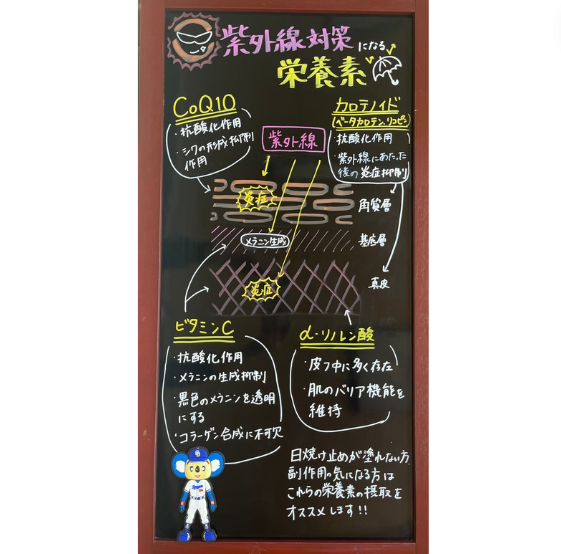 紫外線対策になる
栄養素
CoQ10
・抗酸化作用
・シワの形成抑制
作用
カロテノイド
(ベータカロテン、リコピン)
・抗酸化作用
・紫外線にあたった
後の炎症抑制
紫外線
炎症
角質層
メラニン生成
基底層
炎症
真皮
ビタミンC
・抗酸化作用
・メラニンの生成抑制
・黒色のメラニンを透明
にする
・コラーゲン合成に不可欠
α-リノレン酸
・皮フ中に多く存在
・肌のバリア機能を
維持
日焼け止めが塗れない方
副作用の気になる方は
これらの栄養素の摂取を
オススメします!!